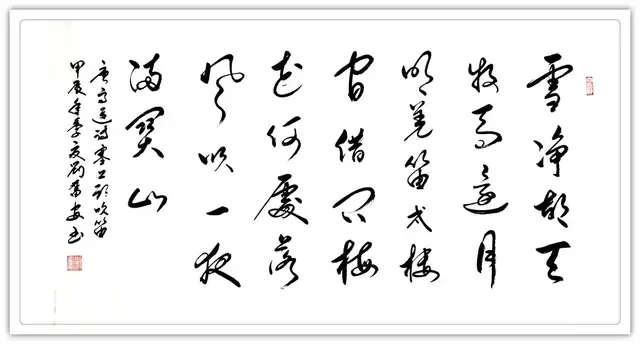 雪净胡天
牧马還月
明羌笛戍楼
间借问梅
花何處落
风吹一夜
满関山
唐高适诗塞上听吹笛
甲辰年季夏劉安书